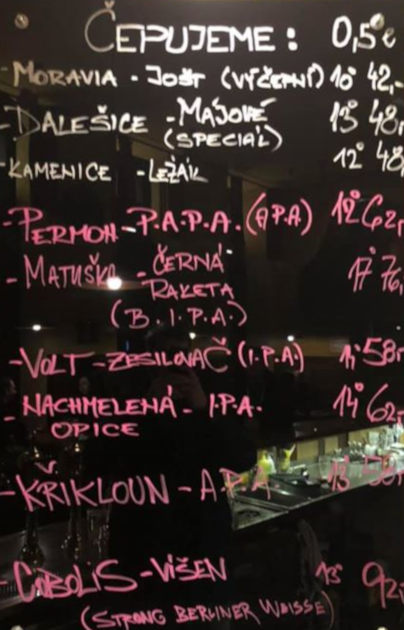 ČEPUJEME: 0,5ℓ
-MORAVIA - JOŠT (VÝČEPNÍ) 10° 42,-
-DALEŠICE - MÁJOVÉ 13° 48,-
(SPECIÁL)
-KAMENICE - LEŽÁK 12° 48,
-PERMON - P.A.P.A. (A.P.A) 12° 62,-
-MATUŠKA - ČERNÁ 17° 76,
RAKETA
(B.I.P.A.)
-VOLT - ZESILOVAČ (I.P.A.) 58,-
-NACHMELENÁ - I.P.A. 14° 62,-
OPICE
-KŘIKLOUN - A.P.A 13°
-COBOLIS - VIŠEŇ 13° 92,
(STRONG BERLINER WEISSE)